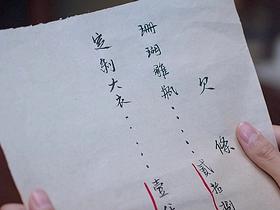 欠條
珊瑚雕瓶……貳拾捌
定制大衣……壹